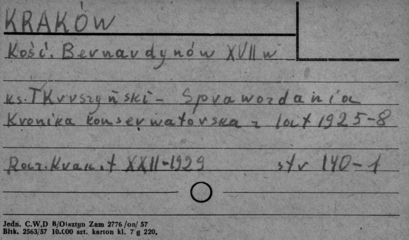 KRAKÓW
Kość. Bernardynów XVII w
ks. T Kruszyński - Sprawozdania
Kronika konserwatorska z lat 1925-8
Rocz. Krak. t XXII-1929 str 140-1
Jedn. C.W.D 8/Olsztyn Zam 2776/on/57
Bltk. 2563/57 10.000 szt. karton kl. 7 g 220.